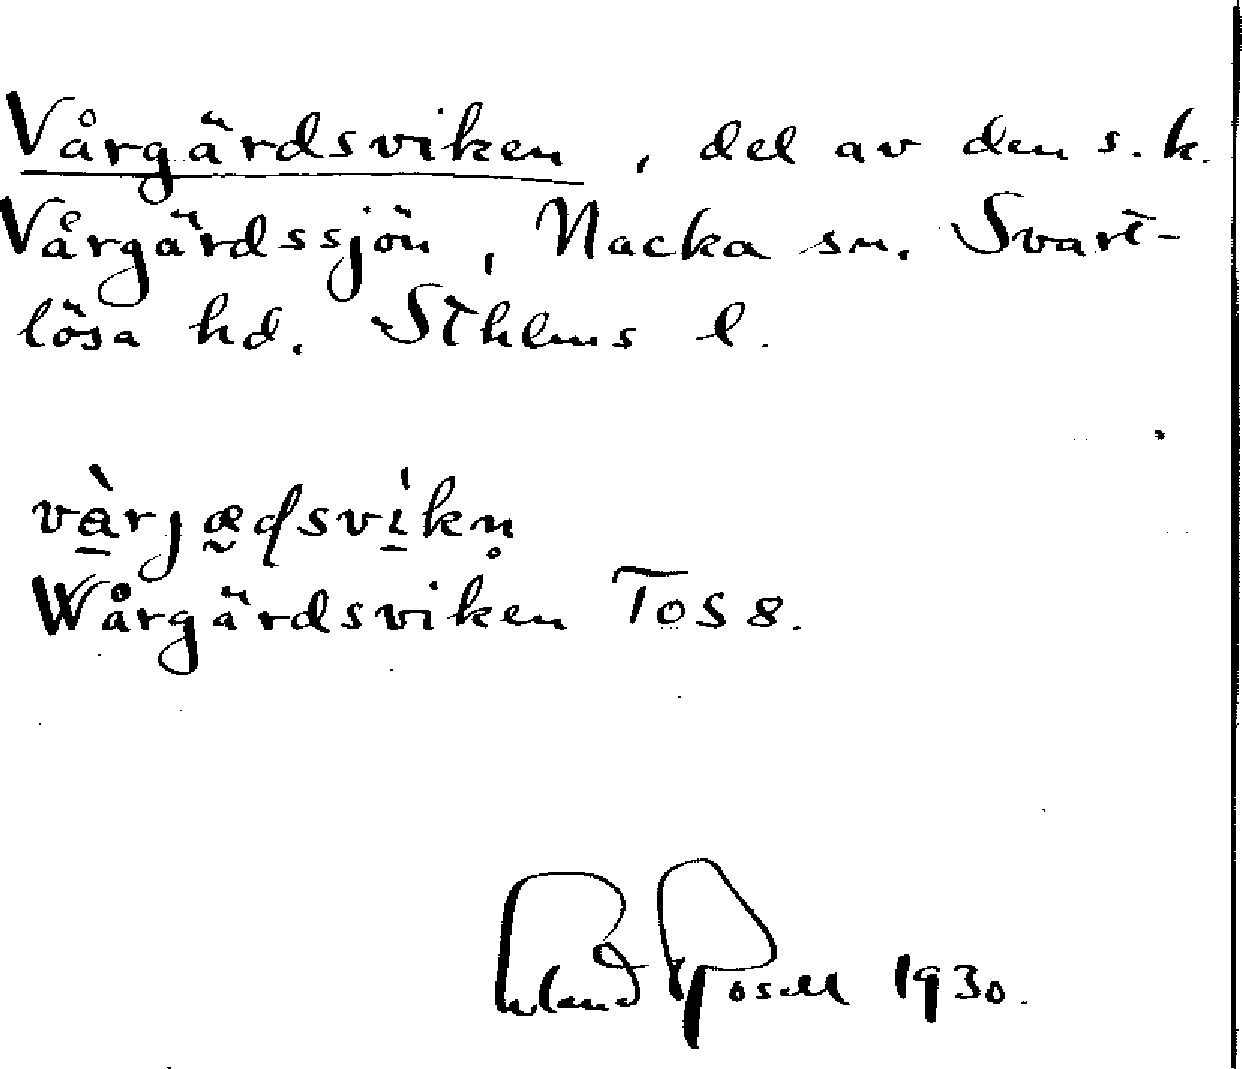 Vårgärdsviken, del av den s.k.
Vårgärdssjön, Nacka sn. Svart-
lösa hd. Sthlms l.
vàrjædsvikn̥
Wårgärdsviken TOS 8.
Erland Rosell 1930.